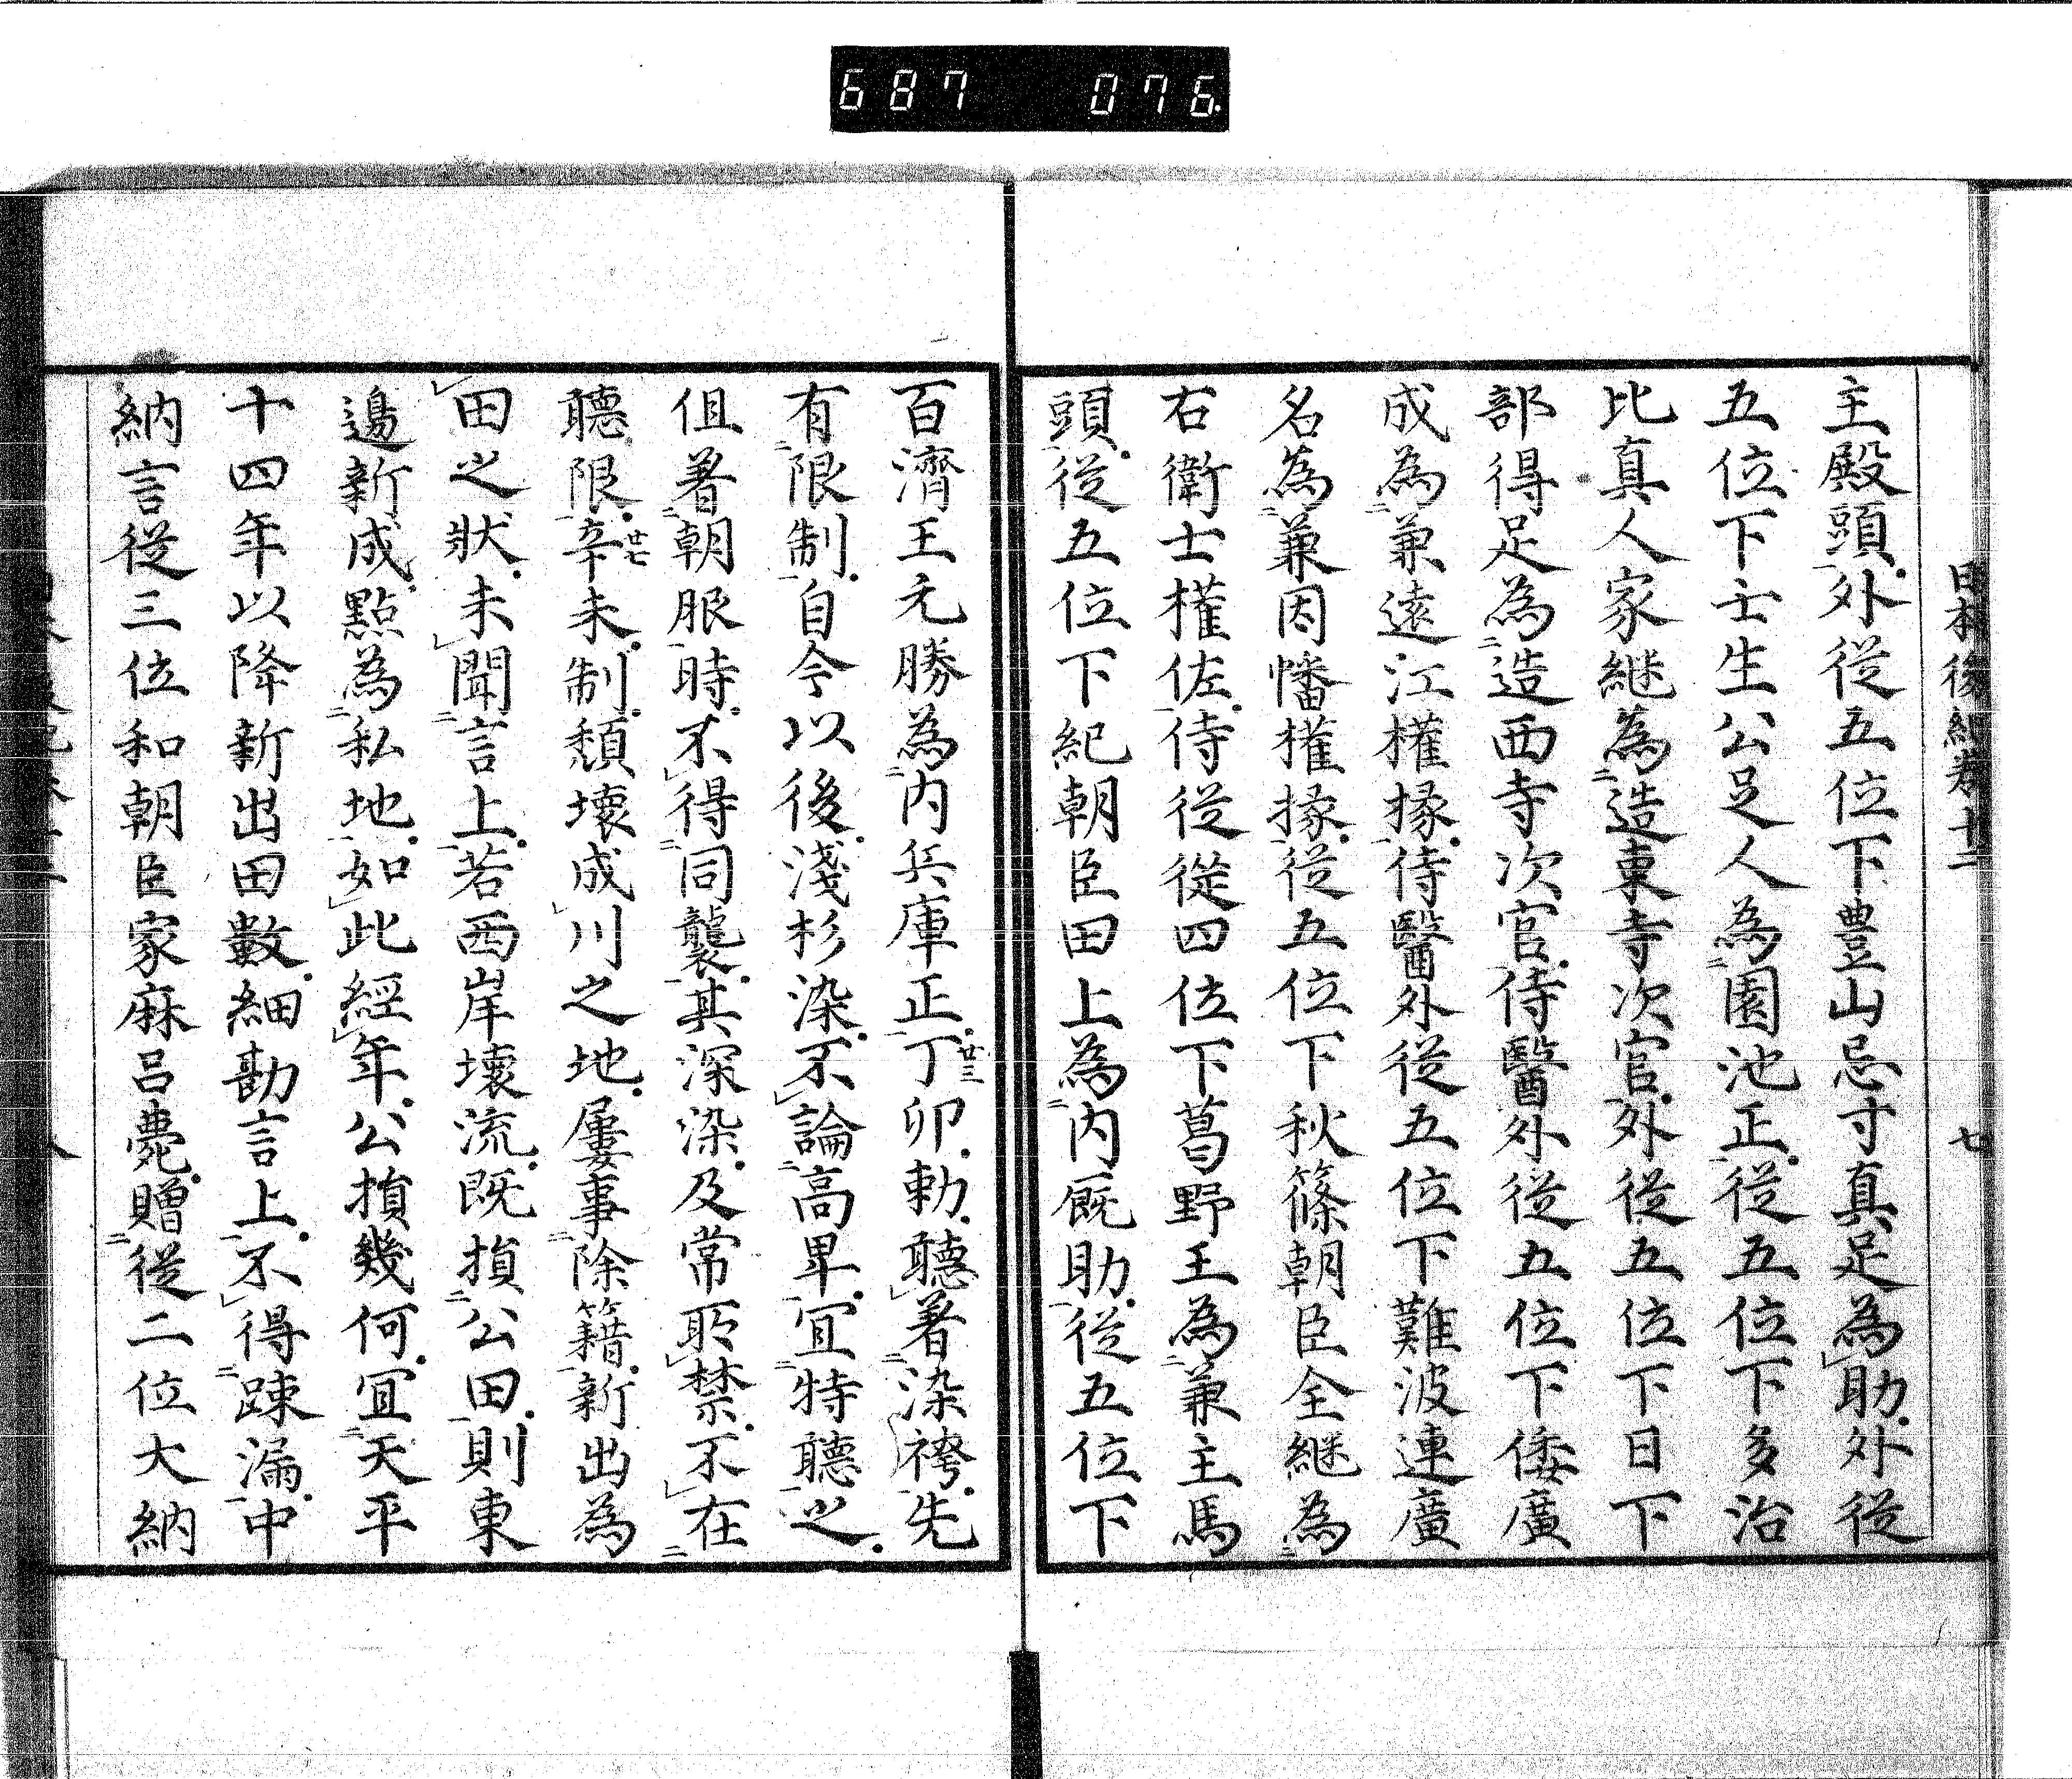 687 076
日本後紀卷十二 七
主殿頭外從五位下豊山忌寸真足為助外從
五位下壬生公足人為園池正從五位下多治
比真人家継為造東寺次官外從五位下日下
部得足為造西寺次官侍醫外從五位下倭廣
成為兼遠江權掾侍醫外從五位下難波連廣
名為兼因幡權掾從五位下秋篠朝臣全継為
右衛士權佐侍從從四位下葛野王為兼主馬
頭從五位下紀朝臣田上為内厩助從五位下
百濟王元勝為内兵庫正丁卯廿三勅聽著染袴先
有限制自今以後淺杉染不論高卑冝特聽之
但著朝服時不得同襲其深染及常所禁不在
聽限辛未廿七制頽壞成川之地屢事除籍新出為
田之狀未聞言上若西岸壞流既損公田則東
邊新成點為私地如此經年公損幾何冝天平
十四年以降新出田數細勘言上不得踈漏中
納言從三位和朝臣家麻呂薨贈從二位大納